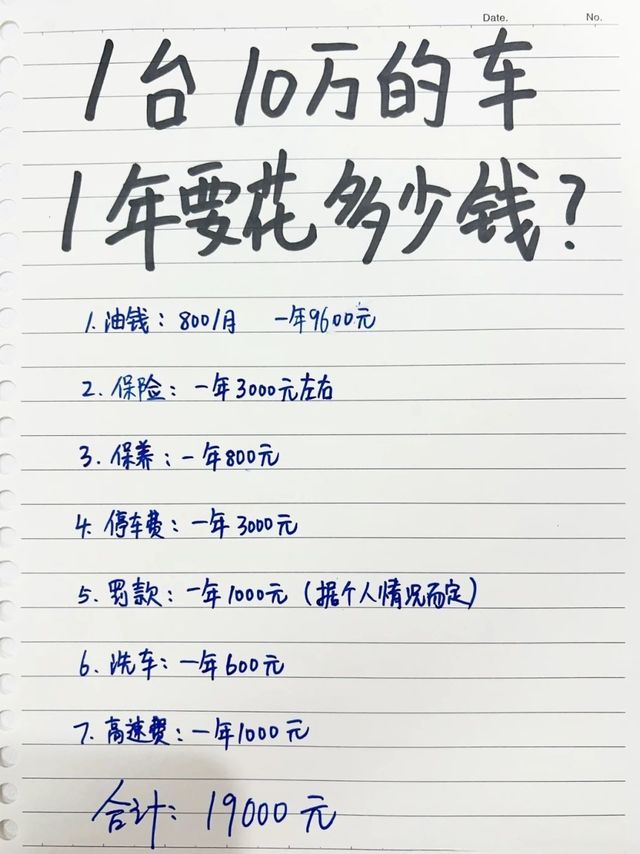 Date. No.
1台10万的车
1年要花多少钱?
1.油钱:800/月 一年9600元
2.保险:一年3000元左右
3.保养:一年800元
4.停车费:一年3000元
5.罚款:一年1000元(据个人情况而定)
6.洗车:一年600元
7.高速费:一年1000元
合计:19000元